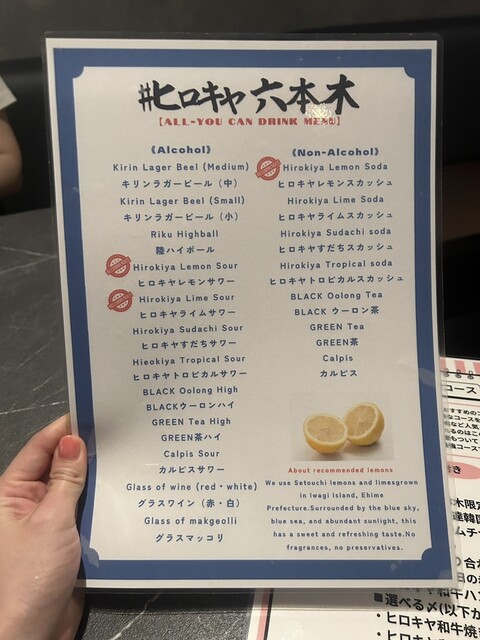 #ヒロキヤ 六本木
【ALL-YOU CAN DRINK MENU】
《Alcohol》
Kirin Lager Beel (Medium)
キリンラガービール（中）
Kirin Lager Beel (Small)
キリンラガービール（小）
Riku Highball
陸ハイボール
Hirokiya Lemon Sour
ヒロキヤレモンサワー
Hirokiya Lime Sour
ヒロキヤライムサワー
Hirokiya Sudachi Sour
ヒロキヤすだちサワー
Hieokiya Tropical Sour
ヒロキヤトロピカルサワー
BLACK Oolong High
BLACKウーロンハイ
GREEN Tea High
GREEN茶ハイ
Calpis Sour
カルピスサワー
Glass of wine (red・white)
グラスワイン（赤・白）
Glass of makgeolli
グラスマッコリ
《Non-Alcohol》
Hirokiya Lemon Soda
ヒロキヤレモンスカッシュ
Hirokiya Lime Soda
ヒロキヤライムスカッシュ
Hirokiya Sudachi soda
ヒロキヤすだちスカッシュ
Hirokiya Tropical soda
ヒロキヤトロピカルスカッシュ
BLACK Oolong Tea
BLACK ウーロン茶
GREEN Tea
GREEN茶
Calpis
カルピス
About recommended lemons
We use Setouchi lemons and limesgrown
in Iwagi Island, Ehime
Prefecture.Surrounded by the blue sky,
blue sea, and abundant sunlight, this
has a sweet and refreshing taste.No
fragrances, no preservatives.
コース
■選べる〆(以下か
・ヒロキヤ和牛焼き